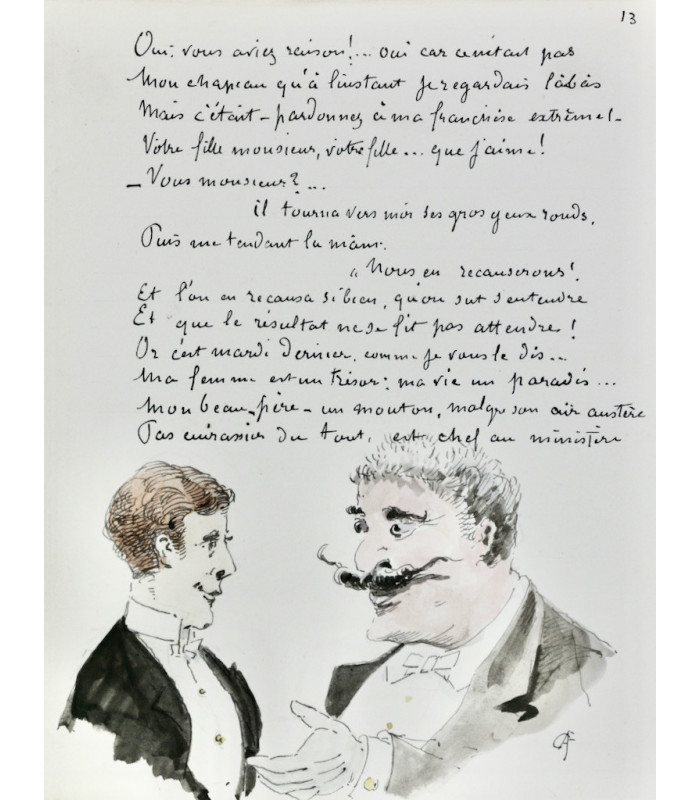 13
Oui: vous aviez raison!... oui car ce n'était pas
Mon chapeau qu'à l'instant je regardais là bas
Mais c'était - pardonnez à ma franchise extrême! -
Votre fille monsieur, votre fille... que j'aime!
- Vous monsieur?...
il tourna vers moi ses gros yeux ronds,
Puis me tendant la main:
"Nous en recauserons".
Et l'on en recausa si bien, qu'on sut s'entendre
Et que le résultat ne se fit pas attendre!
Or c'est mardi dernier, comme je vous le dis...
Ma femme est un trésor: ma vie un paradis...
Mon beau-père - un mouton, malgré son air austère
Pas cuirassier du tout, est chef au ministère